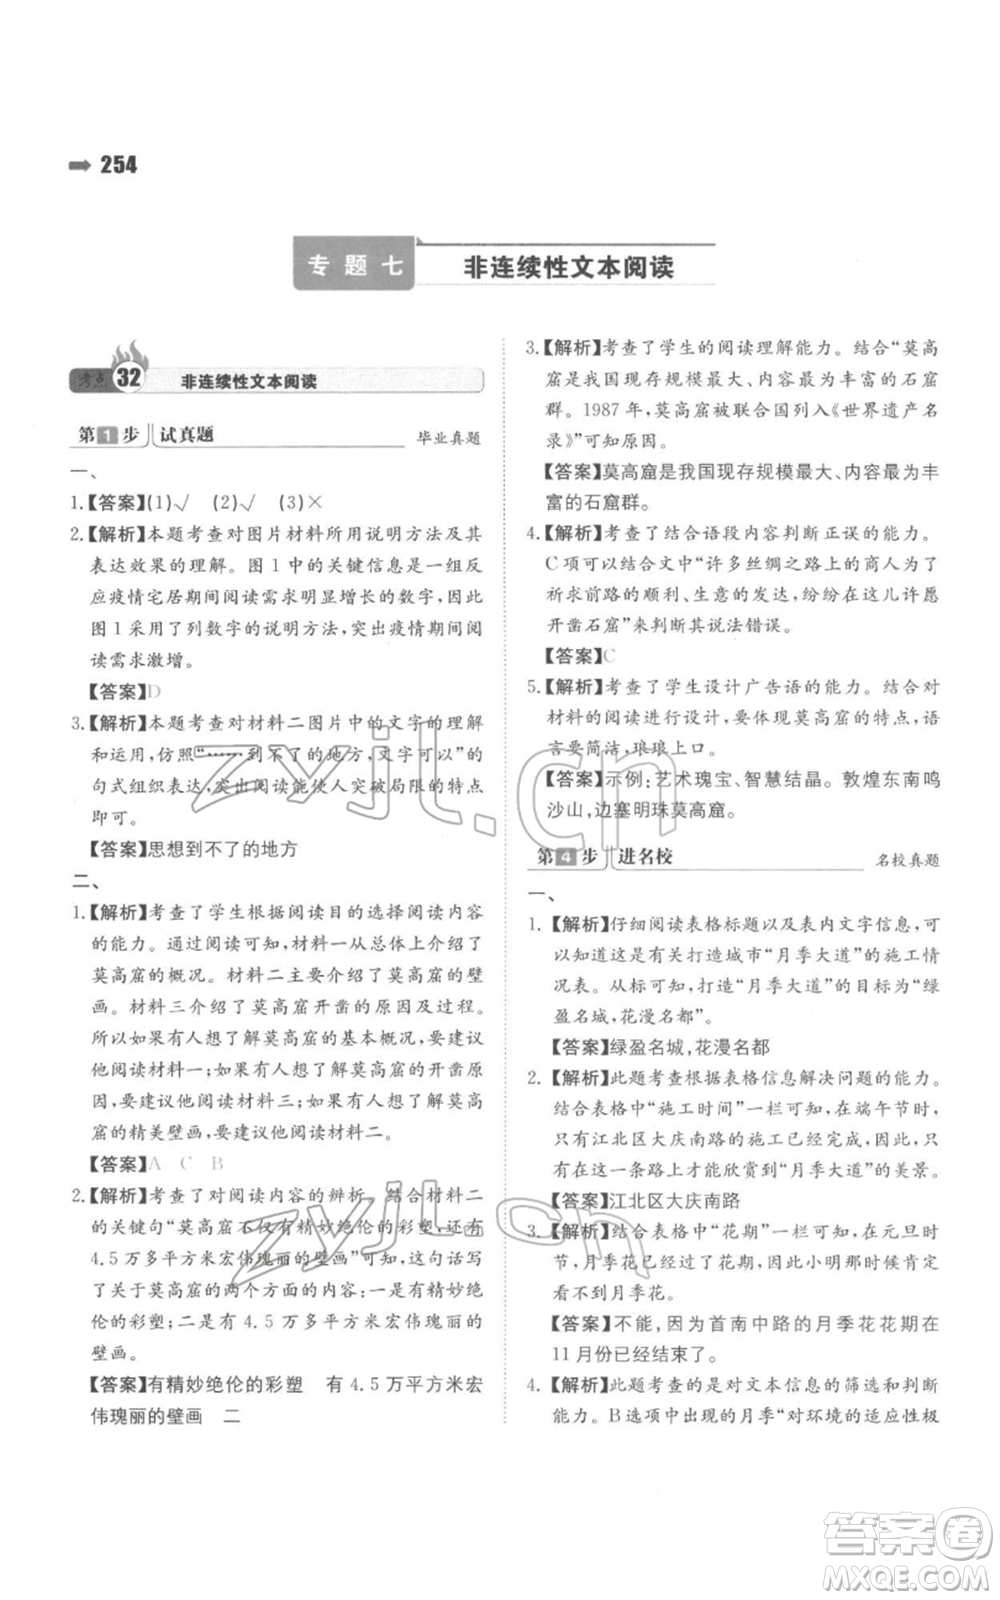 254
专题七 非连续性文本阅读
考点 32 非连续性文本阅读
第1步 试真题 毕业真题
一、
1.【答案】(1)√ (2)√ (3)×
2.【解析】本题考查对图片材料所用说明方法及其
表达效果的理解。图1中的关键信息是一组反
应疫情宅居期间阅读需求明显增长的数字，因此
图1采用了列数字的说明方法，突出疫情期间阅
读需求激增。
【答案】D
3.【解析】本题考查对材料二图片中的文字的理解
和运用，仿照“……到不了的地方，文字可以”的
句式组织表达，突出阅读能使人突破局限的特点
即可。
【答案】思想到不了的地方
二、
1.【解析】考查了学生根据阅读目的选择阅读内容
的能力。通过阅读可知，材料一从总体上介绍了
莫高窟的概况。材料二主要介绍了莫高窟的壁
画。材料三介绍了莫高窟开凿的原因及过程。
所以如果有人想了解莫高窟的基本概况，要建议
他阅读材料一；如果有人想了解莫高窟的开凿原
因，要建议他阅读材料三；如果有人想了解莫高
窟的精美壁画，要建议他阅读材料二。
【答案】A C B
2.【解析】考查了对阅读内容的辨析。结合材料二
的关键句“莫高窟不仅有精妙绝伦的彩塑，还有
4.5万多平方米宏伟瑰丽的壁画”可知，这句话写
了关于莫高窟的两个方面的内容：一是有精妙绝
伦的彩塑；二是有4.5万多平方米宏伟瑰丽的
壁画。
【答案】有精妙绝伦的彩塑 有4.5万平方米宏
伟瑰丽的壁画 二
3.【解析】考查了学生的阅读理解能力。结合“莫高
窟是我国现存规模最大、内容最为丰富的石窟
群。1987年，莫高窟被联合国列入《世界遗产名
录》”可知原因。
【答案】莫高窟是我国现存规模最大、内容最为丰
富的石窟群。
4.【解析】考查了结合语段内容判断正误的能力。
C项可以结合文中“许多丝绸之路上的商人为了
祈求前路的顺利、生意的发达，纷纷在这儿许愿
开凿石窟”来判断其说法错误。
【答案】C
5.【解析】考查了学生设计广告语的能力。结合对
材料的阅读进行设计，要体现莫高窟的特点，语
言要简洁，琅琅上口。
【答案】示例：艺术瑰宝、智慧结晶。敦煌东南鸣
沙山，边塞明珠莫高窟。
第4步 进名校 名校真题
一、
1.【解析】仔细阅读表格标题以及表内文字信息，可
以知道这是有关打造城市“月季大道”的施工情
况表。从标题可知，打造“月季大道”是为了“绿
盈名城，花漫名都”。
【答案】绿盈名城，花漫名都
2.【解析】此题考查根据表格信息解决问题的能力。
结合表格中“施工时间”一栏可知，在端午节时，
只有江北区大庆南路的施工已经完成，因此，只
有走这一条路才能欣赏到“月季大道”的美景。
【答案】江北区大庆南路
3.【解析】结合表格中“花期”一栏可知，在元旦时
节，月季花已经过了花期，说明那时候肯定看
不到月季花。
【答案】不能，因为首南中路的月季花花期在
11月份已经结束了。
4.【解析】此题考查的是对文本信息的筛选和判断
能力。B选项中出现的月季“对环境的适应性极
zyjl.cn
zyjl.cn
答案圈
MXQE.COM